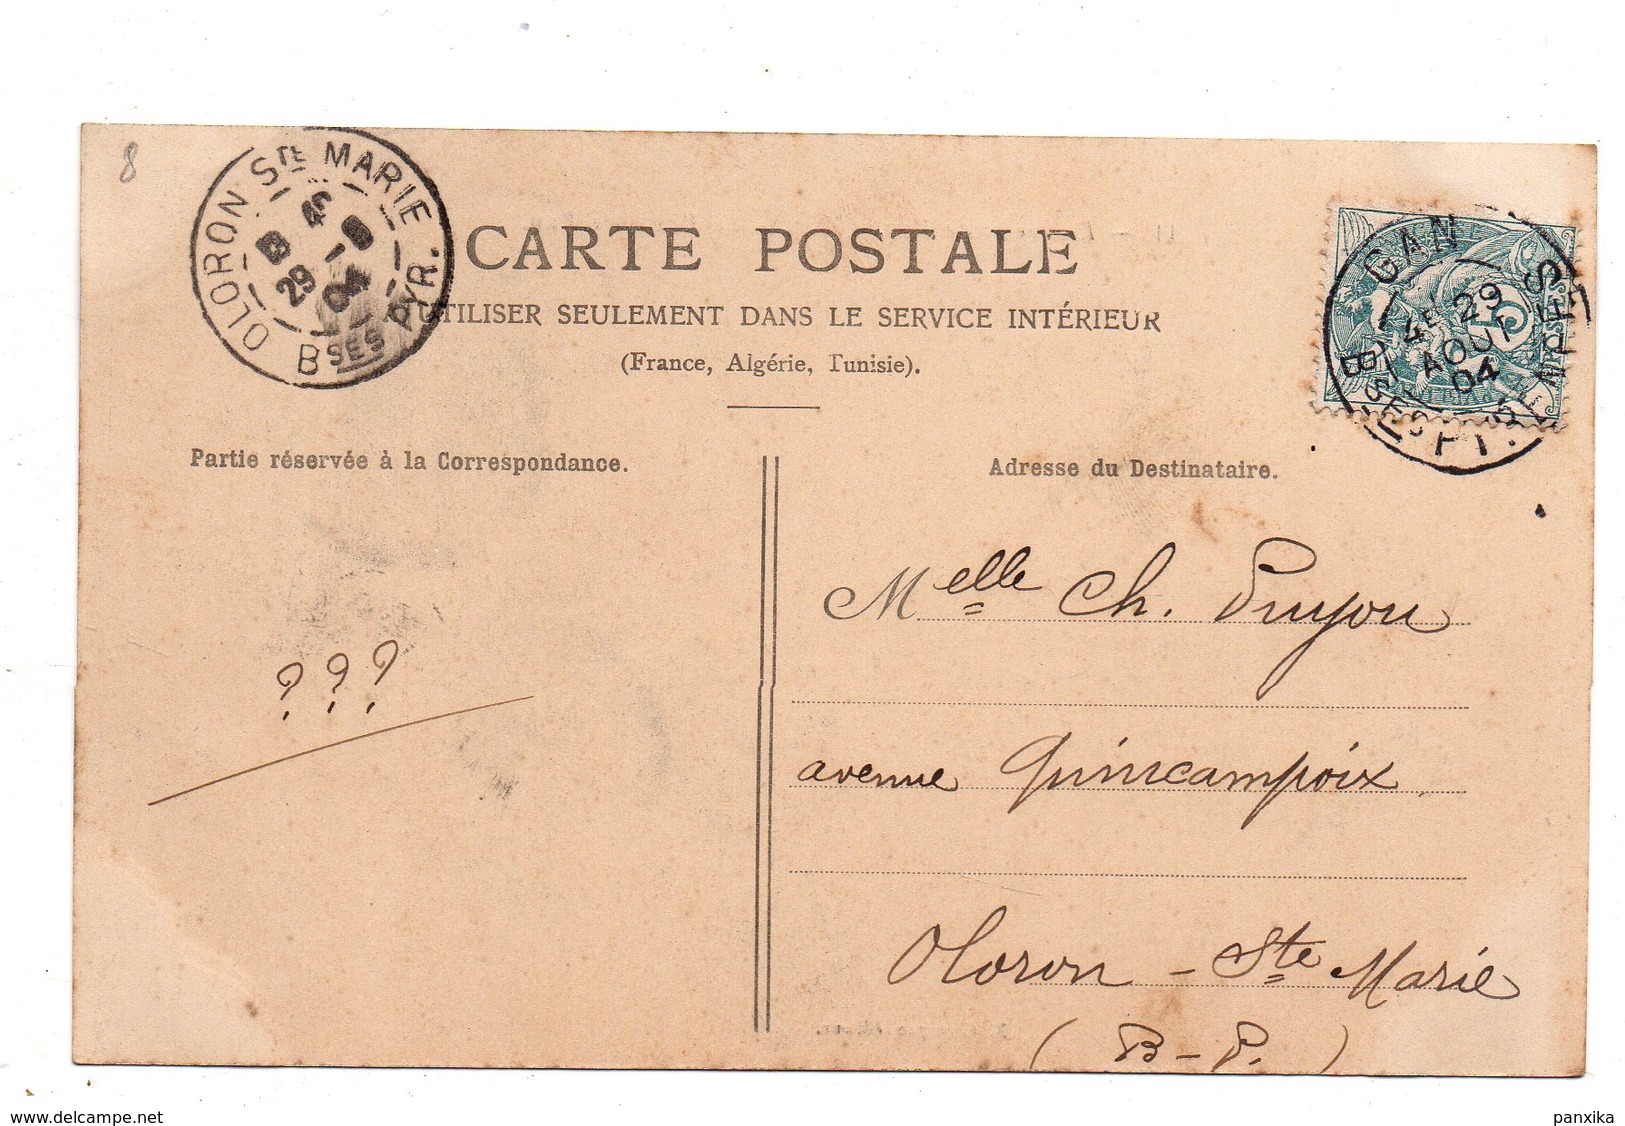 8
OLORON STE MARIE
29
04
BSES PYR.
CARTE POSTALE
UTILISER SEULEMENT DANS LE SERVICE INTÉRIEUR
(France, Algérie, Tunisie).
GAN
4E 29
AOUT
04
BSES PYRENEES
5
POSTES
Partie réservée à la Correspondance.
Adresse du Destinataire.
???
Melle Ch. Puyou
avenue Quincampoix
Oloron - Ste Marie
(B-P.)
www.delcampe.net
panxika